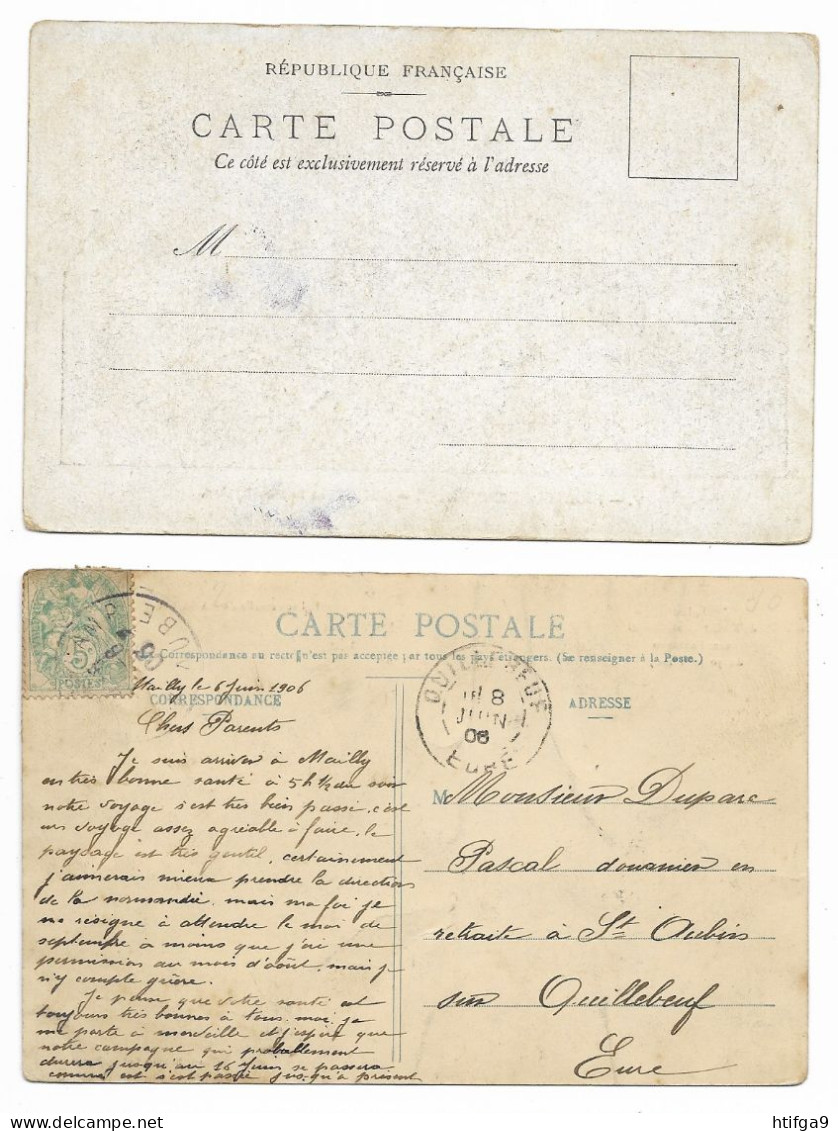 RÉPUBLIQUE FRANÇAISE
CARTE POSTALE
Ce côté est exclusivement réservé à l'adresse
M
CARTE POSTALE
Correspondance au recto n'est pas acceptée par tous les pays étrangers. (Se renseigner à la Poste.)
Mailly le 6 Juin 1906
CORRESPONDANCE
Chers Parents
Je suis arriver à Mailly
en très bonne santé à 5h ½ du soir
notre voyage s'est très bien passé, c'est
un voyage assez agréable à faire, le
paysage est très gentil, certainement
j'aimerais mieux prendre la direction
de la normandie, mais ma foi je
me résigne à attendre le moi de
septembre à moins que j'ai une
permission au mois d'août, mais je
n'y compte guère.
Je pense que votre santé est
toujours très bonnes à tous, moi je
me porte à merveille et j'espère que
notre campagne qui probablement
durera jusqu'au 16 Juin se passera
comme est s'est passé jusqu'à présent
QUILLEBEUF
8
JUIN
06
EURE
ADRESSE
M Monsieur Duparc
Pascal douanier en
retraite à St Aubin
sur Quillebeuf
Eure
5c
POSTES
AUBE
06
htifga9